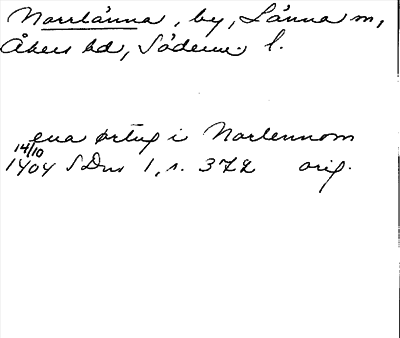 Norrlänna, by, Länna sn,
Åkers hd, Söderm. l.
ena ørtug i Norlennom
14/10
1404 SDns 1, s. 372 orig.